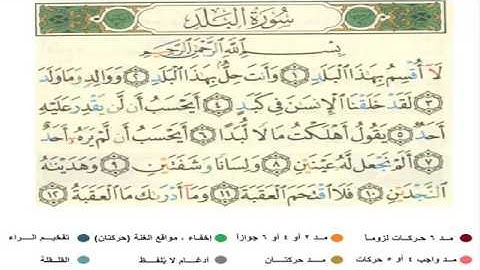 سُورَةُ الْبَلَدِ
بِسْمِ اللَّهِ الرَّحْمَٰنِ الرَّحِيمِ
لَآ أُقْسِمُ بِهَٰذَا ٱلْبَلَدِ ١ وَأَنتَ حِلٌّۢ بِهَٰذَا ٱلْبَلَدِ ٢ وَوَالِدٍ وَمَا وَلَدَ
٣ لَقَدْ خَلَقْنَا ٱلْإِنسَٰنَ فِى كَبَدٍ ٤ أَيَحْسَبُ أَن لَّن يَقْدِرَ عَلَيْهِ
أَحَدٌ ٥ يَقُولُ أَهْلَكْتُ مَالًا لُّبَدًا ٦ أَيَحْسَبُ أَن لَّمْ يَرَهُۥٓ أَحَدٌ
٧ أَلَمْ نَجْعَل لَّهُۥ عَيْنَيْنِ ٨ وَلِسَانًا وَشَفَتَيْنِ ٩ وَهَدَيْنَٰهُ
ٱلنَّجْدَيْنِ ١٠ فَلَا ٱقْتَحَمَ ٱلْعَقَبَةَ ١١ وَمَآ أَدْرَىٰكَ مَا ٱلْعَقَبَةُ ١٢
مـد ٦ حركات لزوماً مـد ٢ أو ٤ أو ٦ جوازاً إخفاء، مواقع الغنة (حركتان) تفخيم الراء
مد واجب ٤ أو ٥ حركات مـد حركتـان أدغام، لا يلفظ القلقلة